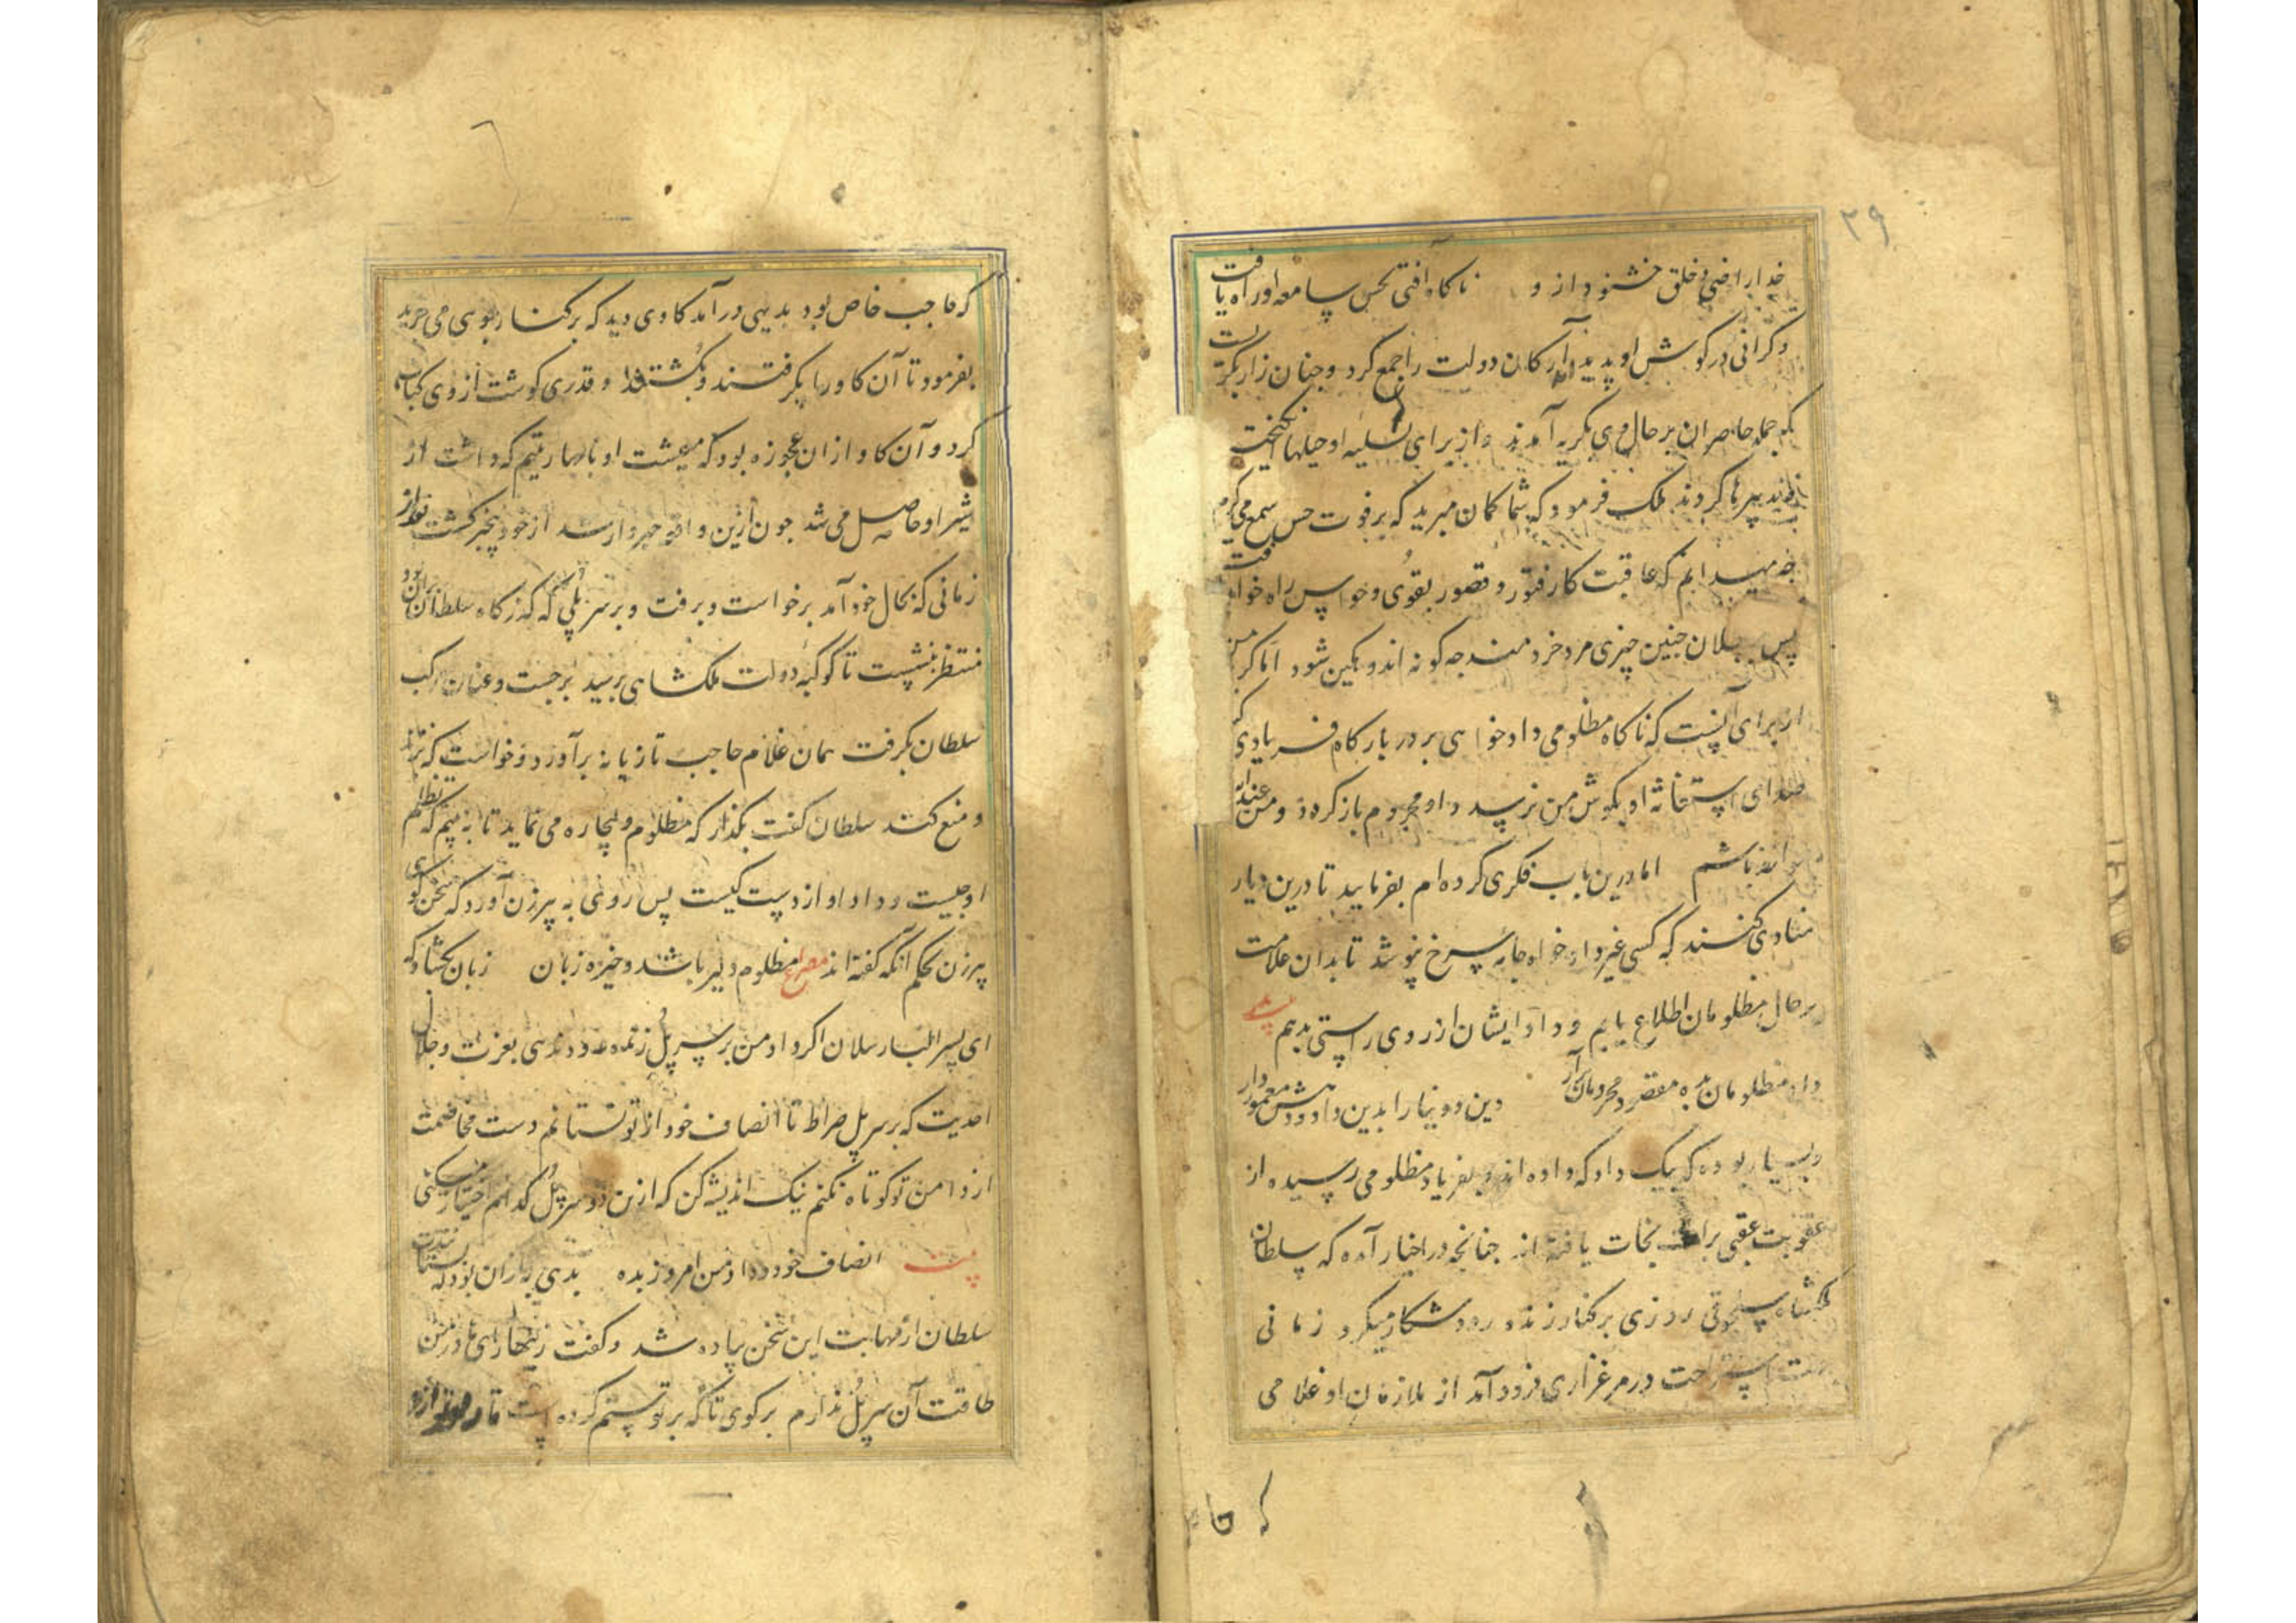 ۳۹
خدا راضی و خلق خشنود ازو ناکاه آفتی بحس سامعه او راه یافت
و کرانی در کوش او پدید آمد ارکان دولت را جمع کرد و چنان زار بکریست
که جمله حاضران بر حال وی بکریه آمدند و از برای تسلیه او حیلها انکیختند
تدبیرها کردند ملک فرمود که شما کمان مبرید که بر فوت حس سمع می کریم
چه میدانم که عاقبت کار فتور و قصور بقوی و حواس راه خواهد یافت
پس ببطلان چنین چیزی مرد خردمند چه کونه اندوهکین شود اما کریه من
از برای آنست که ناکاه مظلومی دادخواهی بر در بارکاه فریادی کند
صدای استغاثه او بکوش من نرسد و او محروم باز کردد و من عند الله
مواخذ باشم اما درین باب فکری کرده ام بفرمایید تا درین دیار
منادی کنند که کسی غیر دادخواه جامه سرخ نپوشد تا بدان علامت
بر حال مظلومان اطلاع یابم و داد ایشان از روی راستی بدهم
داد مظلومان بده مقصود محرومان برآر دین و دنیا را بدین داد و دهش معمور دار
و بسیار بوده که بیک داد که داده اند و بفریاد مظلومی رسیده از
عقوبت عقبی نجات یافته اند چنانچه در اخبار آمده که سلطان
ملکشاه سلجوقی روزی بر کنار زنده رود شکار میکرد زمانی
استراحت در مرغزاری فرود آمد از ملازمان او غلامی
که حا
که حاجب خاص بود بدیهی درآمد کاوی دید که بر کنار جوی می چرید
بفرمود تا آن کاو را بکرفتند و بکشتند و قدری کوشت از وی کباب
کرد و آن کاو از ان عجوزه بود که معیشت او با چهار یتیم که داشت از
شیر او حاصل می شد چون ازین واقعه خبردار شد از خود بیخبر کشت
زمانی که بحال خود آمد برخواست و برفت و بر سر پلی که کذرکاه سلطان بران بود
منتظر بنشست تا کوکبه دولت ملکشاهی برسید برجست و عنان مرکب
سلطان بکرفت همان غلام حاجب تازیانه برآورد و خواست که
و منع کند سلطان کفت بکذار که مظلوم و بیچاره می نماید تا به بینم که تظلم
او چیست و داد او از دست کیست پس روی به پیرزن آورد که سخن کوی
پیرزن بحکم آنکه کفته اند مصرع مظلوم دلیر باشد و خیره زبان زبان بکشاد که
ای پسر الب ارسلان اکر داد من بر سر پل زنده رود ندهی بعزت و جلال
احدیت که بر سر پل صراط تا انصاف خود از تو نستانم دست مخاصمت
از دامن تو کوتاه نکنم نیک اندیشه کن که ازین دو سر پل کدام اختیار میکنی
بیت انصاف خود و داد من امروز بده بدهی به ازان بود که بستانندت
سلطان از مهابت این سخن پیاده شد و کفت زینهار ای مادر من
طاقت آن سر پل ندارم بر کوی تا که بر تو ستم کرده است